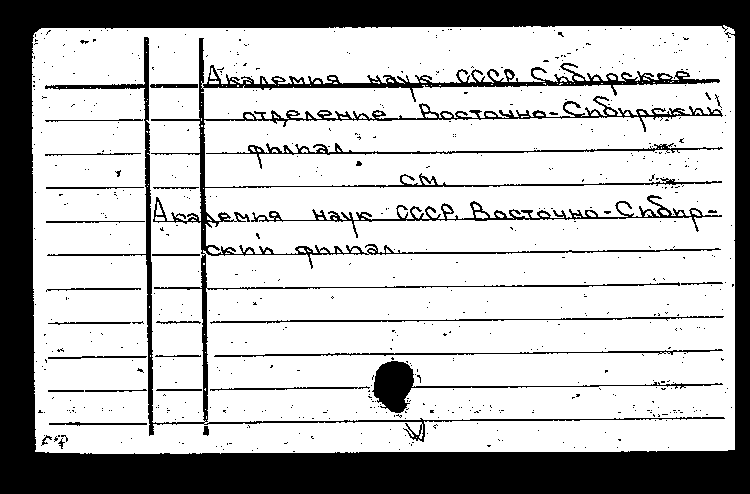 Академия наук СССР. Сибирское
отделение. Восточно-Сибирский
филиал.
см.
Академия наук СССР. Восточно-Сибир-
ский филиал.